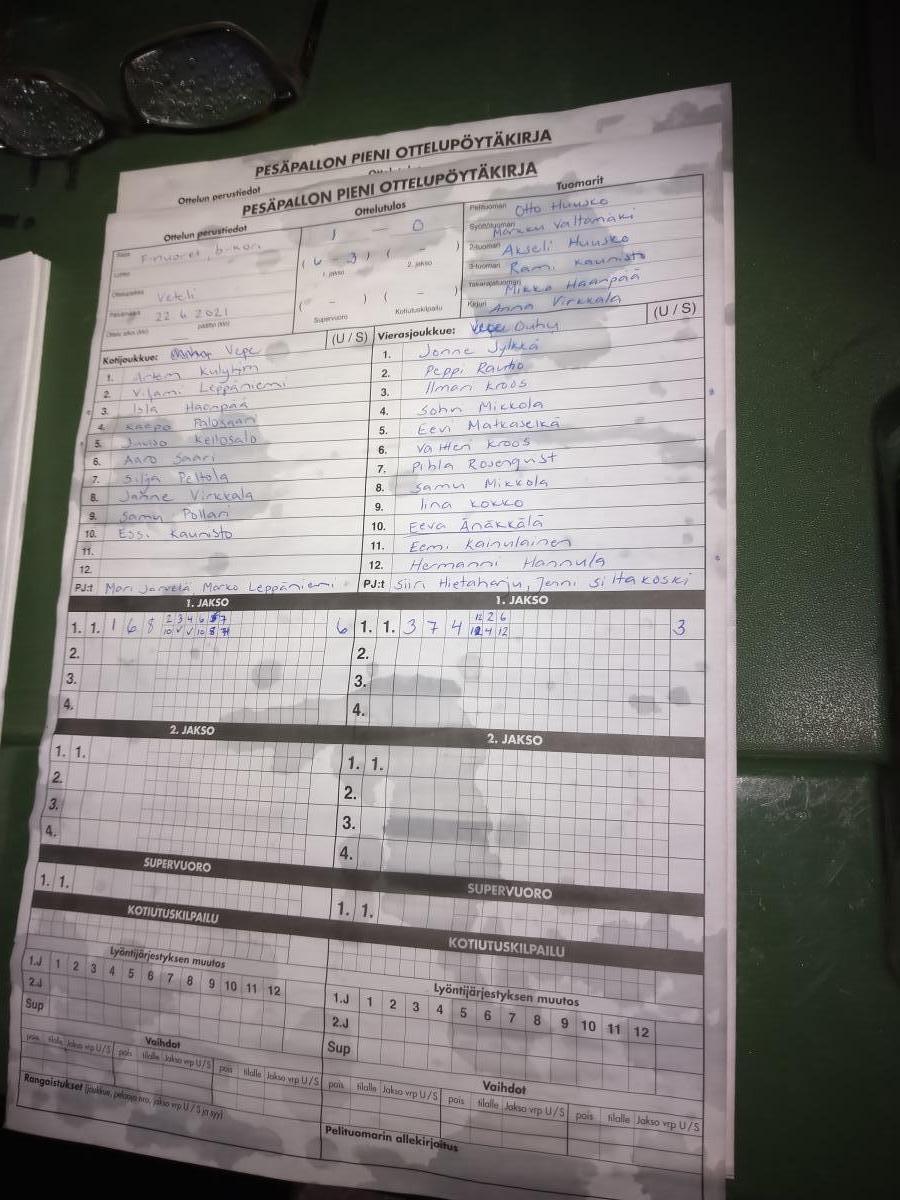 PESÄPALLON PIENI OTTELUPÖYTÄKIRJA
Ottelun perustiedot
PESÄPALLON PIENI OTTELUPÖYTÄKIRJA
Ottelun perustiedot
Sarja F-nuoret,
Lohko
Ottelupaikka Veteli
Päivämäärä 22 6 2021
Ottelu alkoi (klo) päättyi (klo)
Ottelutulos
1 - 0
( 6 - 3 ) ( - )
1. jakso 2. jakso
( - ) ( - )
Supervuoro Kotiutuskilpailu
Tuomarit
Pelituomari Otto Huusko
Syöttötuomari Markku Valtamäki
2-tuomari Akseli Huusko
3-tuomari Rami Kaunisto
Takarajatuomari Mikko Haanpää
Kirjuri Anna Virkkala
Kotijoukkue: Vepe (U / S)
1. Artem Kulyhm
2. Viljami Leppäniemi
3. Isla Haanpää
4. Kaapo Palosaari
5. Juuso Kellosalo
6. Aaro Saari
7. Silja Peltola
8. Janne Virkkala
9. Samu Pollari
10. Essi Kaunisto
11.
12.
PJ:t Mari Järvelä, Marko Leppäniemi
Vierasjoukkue: Ouhu (U / S)
1. Jonne Jylkkä
2. Peppi Rautio
3. Ilmari Kroos
4. John Mikkola
5. Eevi Matkaselkä
6. Valtteri Kroos
7. Pihla Rosenqvist
8. Samu Mikkola
9. Iina Kokko
10. Eeva Änäkkälä
11. Eemi Kainulainen
12. Hermanni Hannula
PJ:t Siiri Hietaharju, Jenni Siltakoski
1. JAKSO
1. 1. 1 6 8 6
2.
3.
4.
1. JAKSO
1. 1. 3 7 4 3
2.
3.
4.
2. JAKSO
1. 1.
2.
3.
4.
2. JAKSO
1. 1.
2.
3.
4.
SUPERVUORO
1. 1.
SUPERVUORO
1. 1.
KOTIUTUSKILPAILU
KOTIUTUSKILPAILU
Lyöntijärjestyksen muutos
1.J 1 2 3 4 5 6 7 8 9 10 11 12
2.J
Sup
Lyöntijärjestyksen muutos
1.J 1 2 3 4 5 6 7 8 9 10 11 12
2.J
Sup
Vaihdot
pois tilalle Jakso vrp U/S pois tilalle Jakso vrp U/S pois tilalle Jakso vrp U/S
Vaihdot
pois tilalle Jakso vrp U/S pois tilalle Jakso vrp U/S pois tilalle Jakso vrp U/S
Rangaistukset (joukkue, pelaaja nro, jakso vrp U / S ja syy)
Pelituomarin allekirjoitus